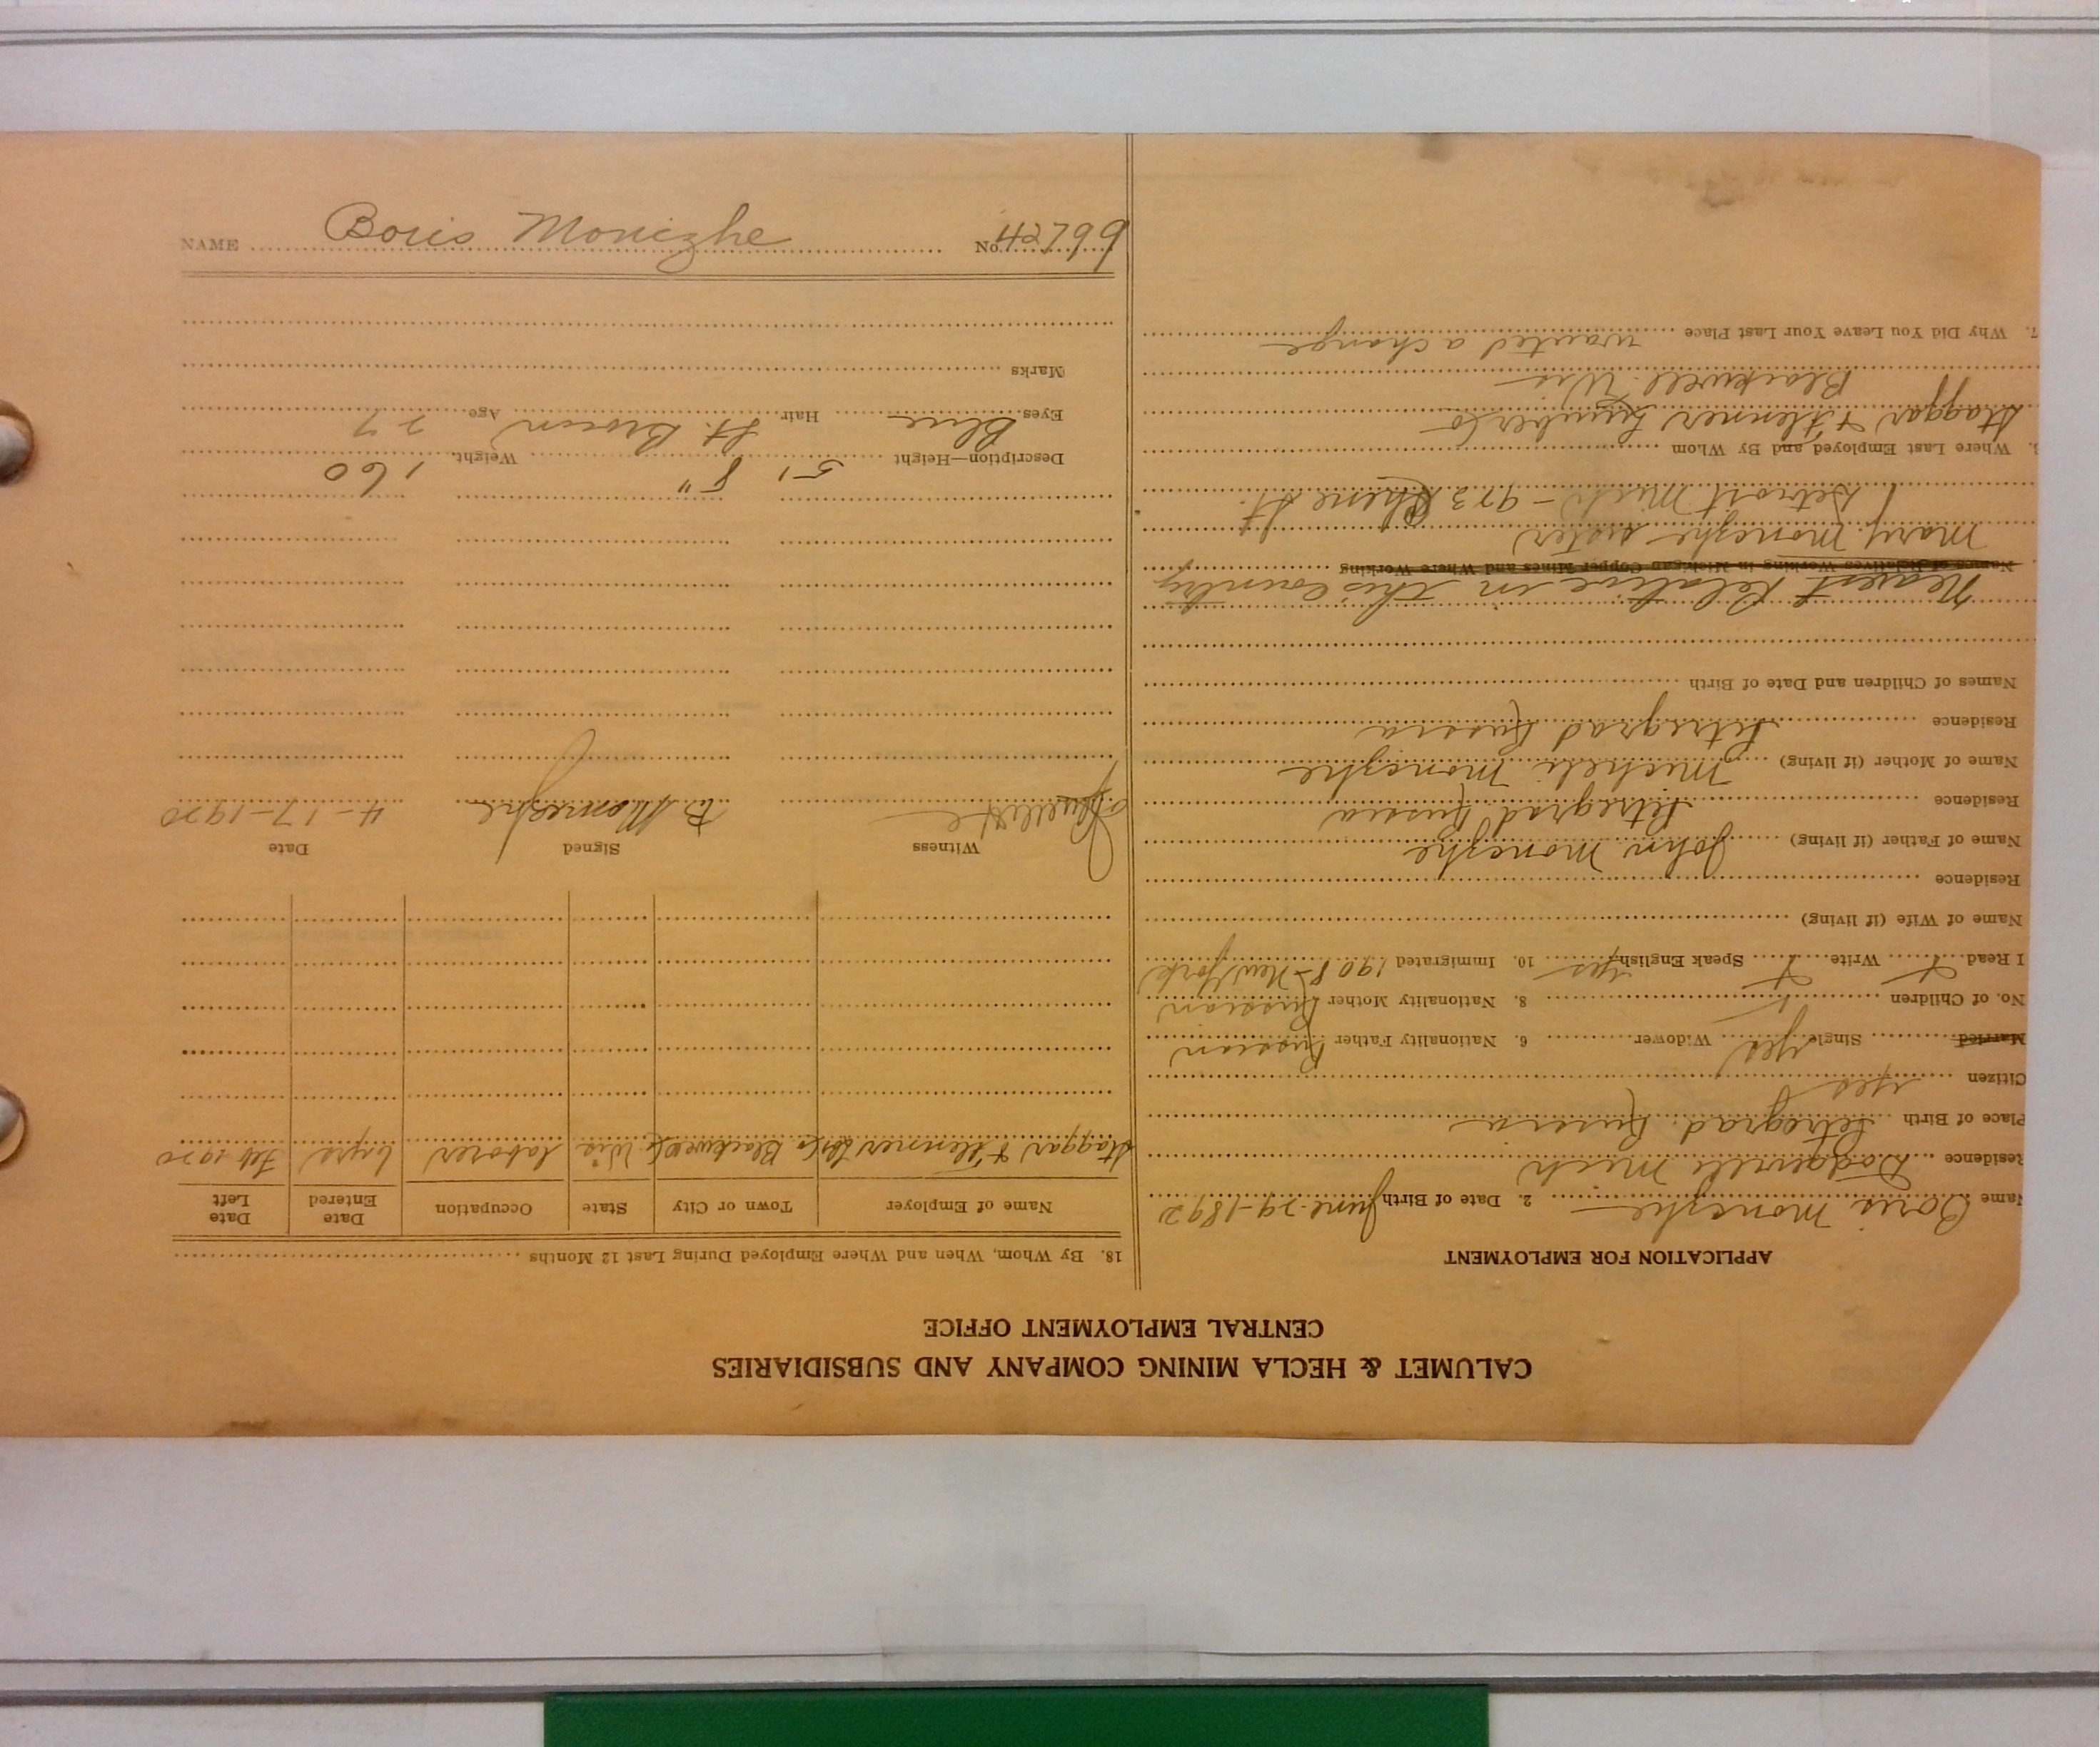 CALUMET & HECLA MINING COMPANY AND SUBSIDIARIES
CENTRAL EMPLOYMENT OFFICE
APPLICATION FOR EMPLOYMENT
Name Boris Monezhe 2. Date of Birth June-29-1892
Residence Dodgeville Mich
Place of Birth Petregrad Russia
Citizen yes
Married Single yes Widower 6. Nationality Father Russian
No. of Children 8. Nationality Mother Russian
I Read Write Speak English yes 10. Immigrated 1908-New York
Name of Wife (if living)
Residence
Name of Father (if living) John Monezhe
Residence Petregrad Russia
Name of Mother (if living) Micheli Monezhe
Residence Petregrad Russia
Names of Children and Date of Birth
Nearest Relative in this Country
Names of Relatives Working in Michigan Copper Mines and Where Working
Mary Monezhe sister
Detroit Mich - 973 Chene St.
Where Last Employed and By Whom
Staggar & Flenner Lumber Co
Blackwell Wis
7. Why Did You Leave Your Last Place wanted a change
18. By Whom, When and Where Employed During Last 12 Months
Name of Employer Town or City State Occupation Date Entered Date Left
Staggar & Flenner Lbr Co Blackwell Wis laborer 6 yrs Feb 1920
Witness Signed Date
B. Monezhe 4-17-1920
Description—Height 5' 8" Weight 160
Eyes Blue Hair Lt. Brown Age 27
Marks
NAME Boris Monezhe No. 42799